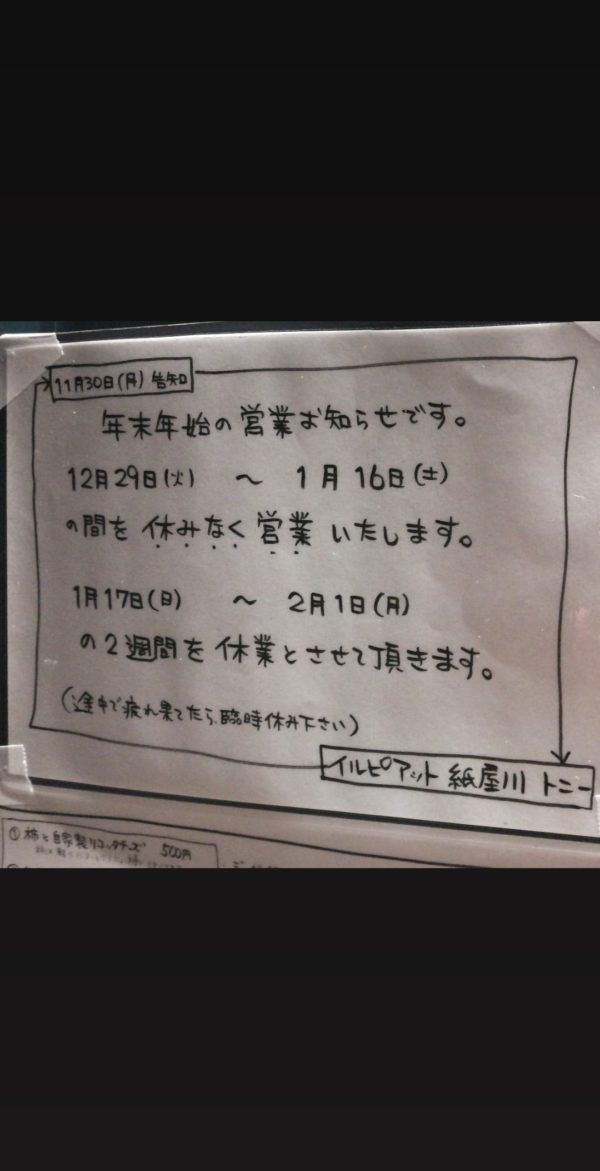 11月30日(月) 告知
年末年始の営業お知らせです。
12月29日(火) 〜 1月16日(土)
の間を休みなく営業いたします。
1月17日(日) 〜 2月1日(月)
の2週間を休業とさせて頂きます。
(途中で疲れ果てたら、臨時休み下さい)
イルピアット 紙屋川 トニー
① 柿と自家製リコッタチーズ 500円